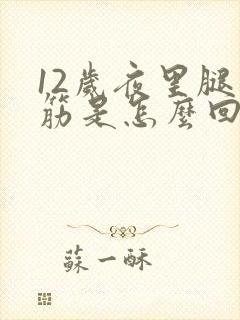 12歲夜里腿
筋是怎麼回
蘇一酥